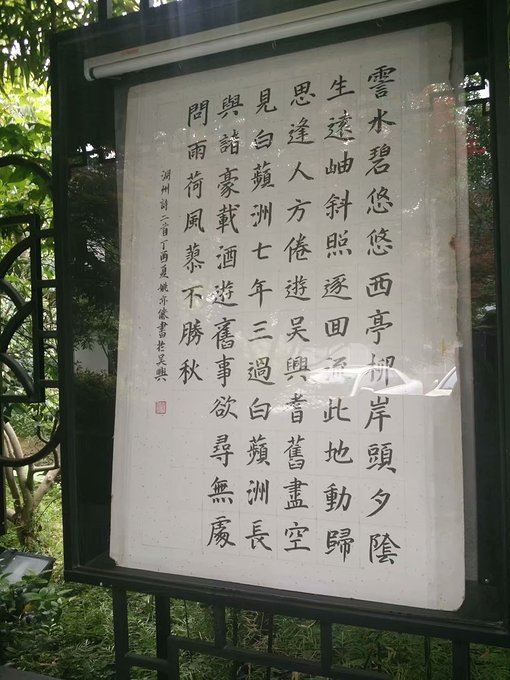 霅水碧悠悠西亭柳岸頭夕陰
生遠岫斜照逐回流此地動歸
思逢人方倦遊吳興耆舊盡空
見白蘋洲七年三過白蘋洲長
與諸豪載酒遊舊事欲尋無處
問雨荷風蓼不勝秋
湖州詩二首丁酉夏姚書於吳興